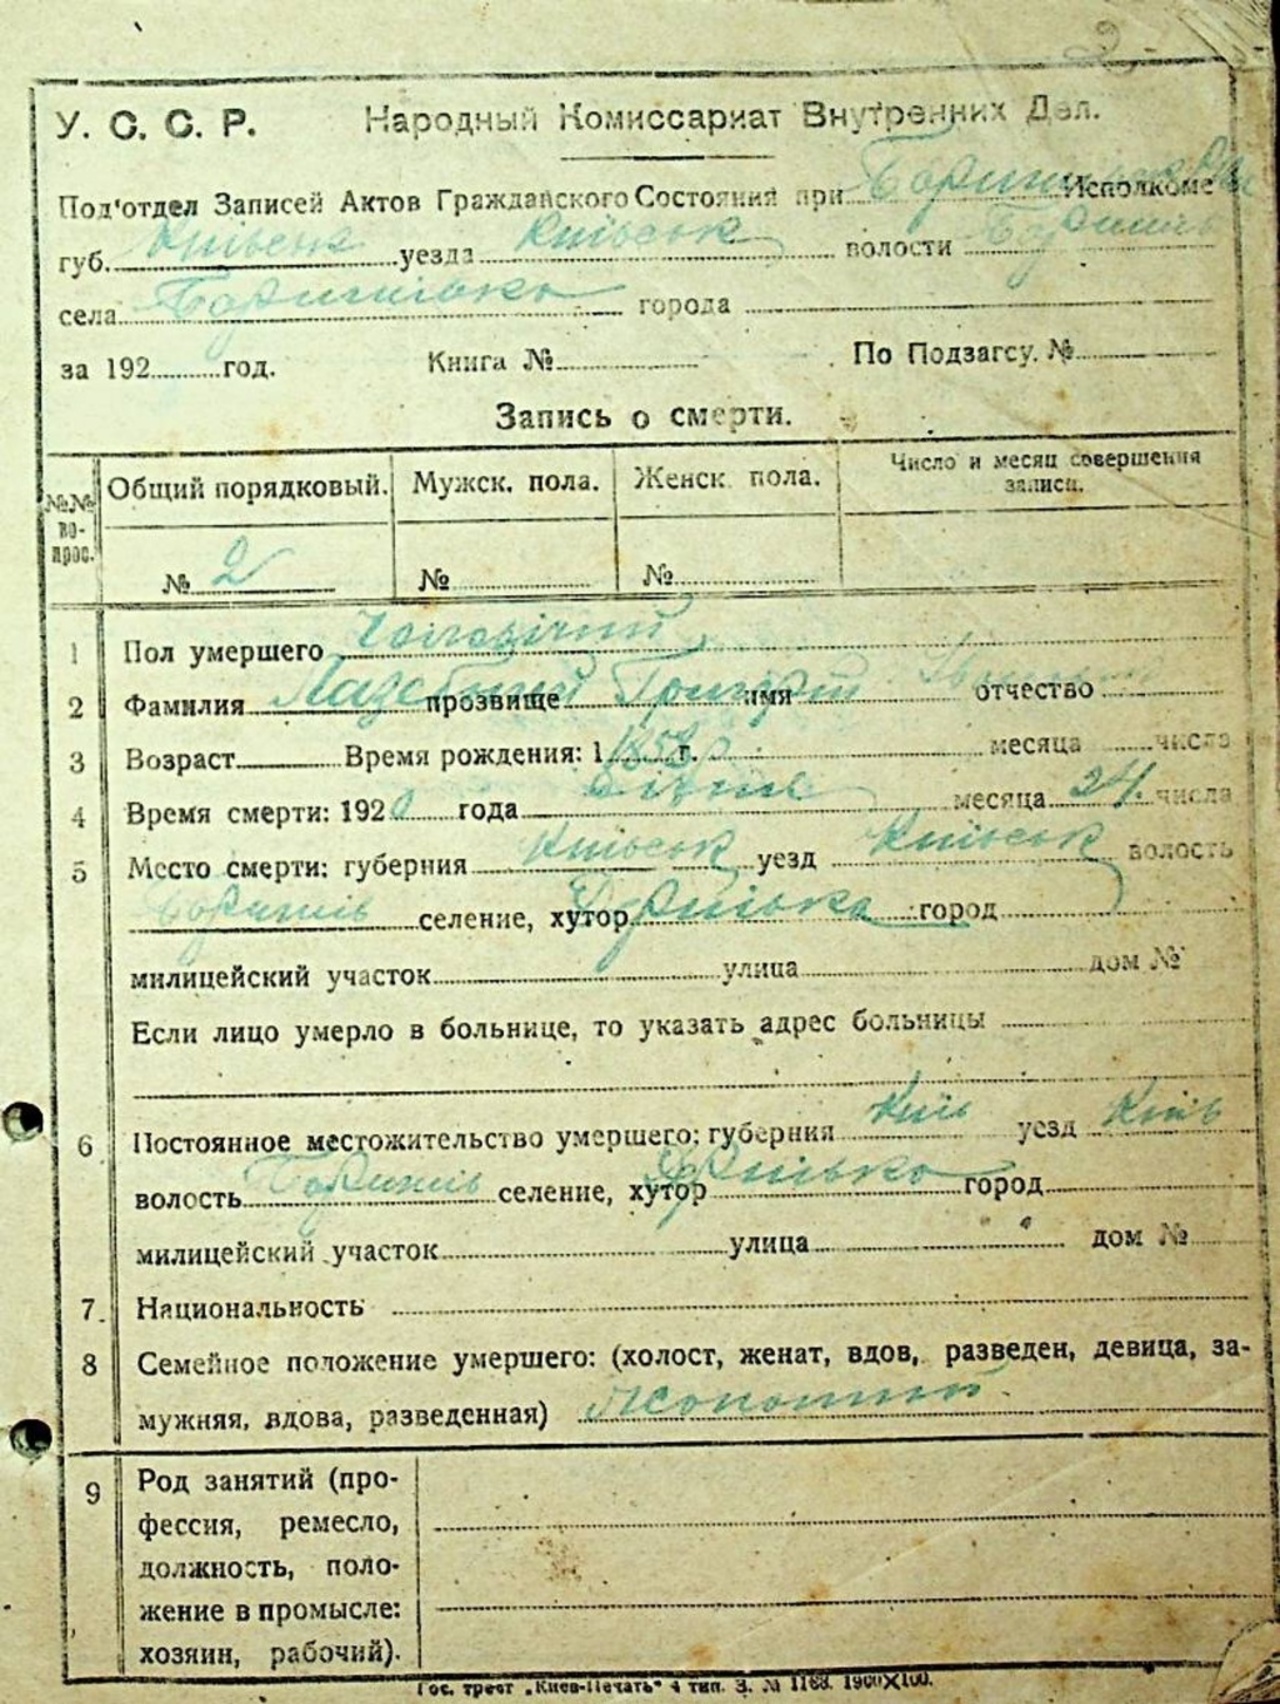 У. С. С. Р. Народный Комиссариат Внутренних Дел.
Под'отдел Записей Актов Гражданского Состояния при Исполкоме
губ. Київськ уезда Київськ волости
села города
за 192 год. Книга № По Подзагсу. №
Запись о смерти.
№№ вопрос. Общий порядковый. Мужск. пола. Женск. пола. Число и месяц совершения записи.
№ 2 № №
1 Пол умершего Чоловічий
2 Фамилия прозвище Григорій имя отчество
3 Возраст Время рождения: 1 г. месяца числа
4 Время смерти: 1920 года месяца 24 числа
5 Место смерти: губерния Київськ уезд Київськ волость
селение, хутор город
милицейский участок улица дом №
Если лицо умерло в больнице, то указать адрес больницы
6 Постоянное местожительство умершего: губерния Київ уезд Київ
волость селение, хутор город
милицейский участок улица дом №
7. Национальность
8 Семейное положение умершего: (холост, женат, вдов, разведен, девица, за-
мужняя, вдова, разведенная)
9 Род занятий (про-
фессия, ремесло,
должность, поло-
жение в промысле:
хозяин, рабочий).
Гос. трест „Киев-Печать" 4 тип. З. № 1163. 1900Х100.